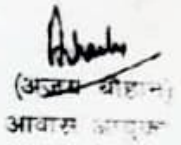 (अजय चौहान)
आवास आयुक्त